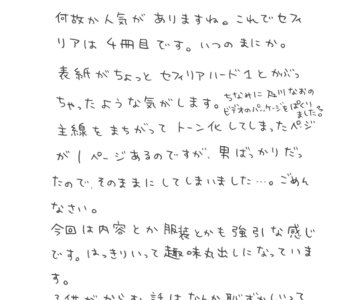 何故か人気がありますね。これでセフィ
リアは4冊目です。いつのまにか。
表紙がちょっとセフィリアハード1とかぶっ
ちゃったような気がします。
ちなみに及川なおの
ビデオのパッケージをぱくり
ました。
主線をまちがってトーン化してしまったページ
が1ページあるのですが、男ばっかりだっ
たので、そのままにしてしまいました…。ごめん
なさい。
今回は内容とか服装とかも強引な感じ
です。はっきりいって趣味丸出しになっていま
す。
子供がからむ話はなんか恥ずかしいって